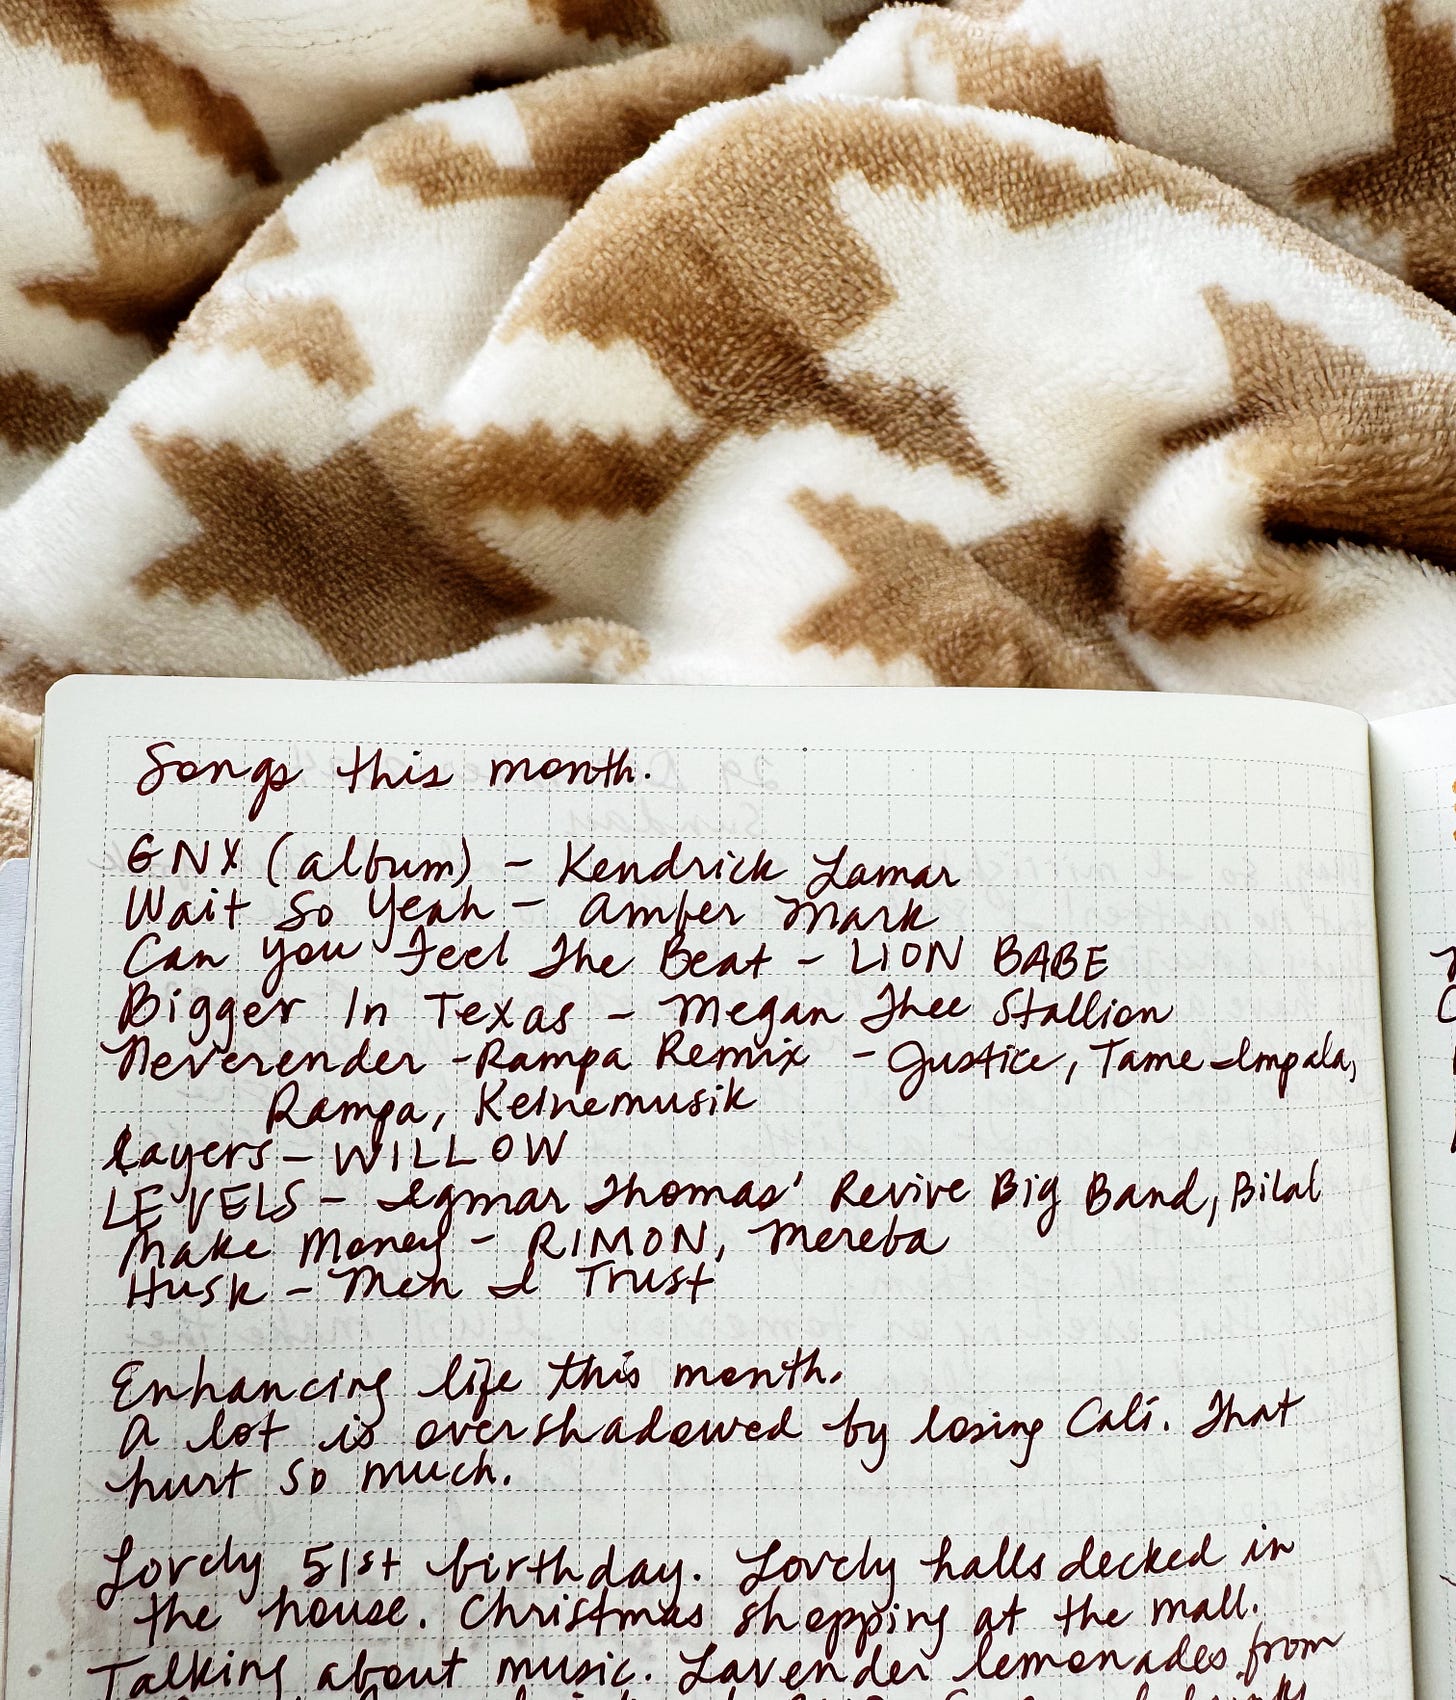 Songs this month.
GNX (album) - Kendrick Lamar
Wait So Yeah - Amber Mark
Can You Feel The Beat - LION BABE
Bigger In Texas - Megan Thee Stallion
Neverender - Rampa Remix - Justice, Tame Impala,
Rampa, Keinemusik
Layers - WILLOW
LEVELS - Igmar Thomas' Revive Big Band, Bilal
Make Money - RIMON, Mereba
Husk - Men I Trust
Enhancing life this month.
A lot is overshadowed by losing Cali. That
hurt so much.
Lovely 51st birthday. Lovely halls decked in
the house. Christmas shopping at the mall.
Talking about music. Lavender lemonades from